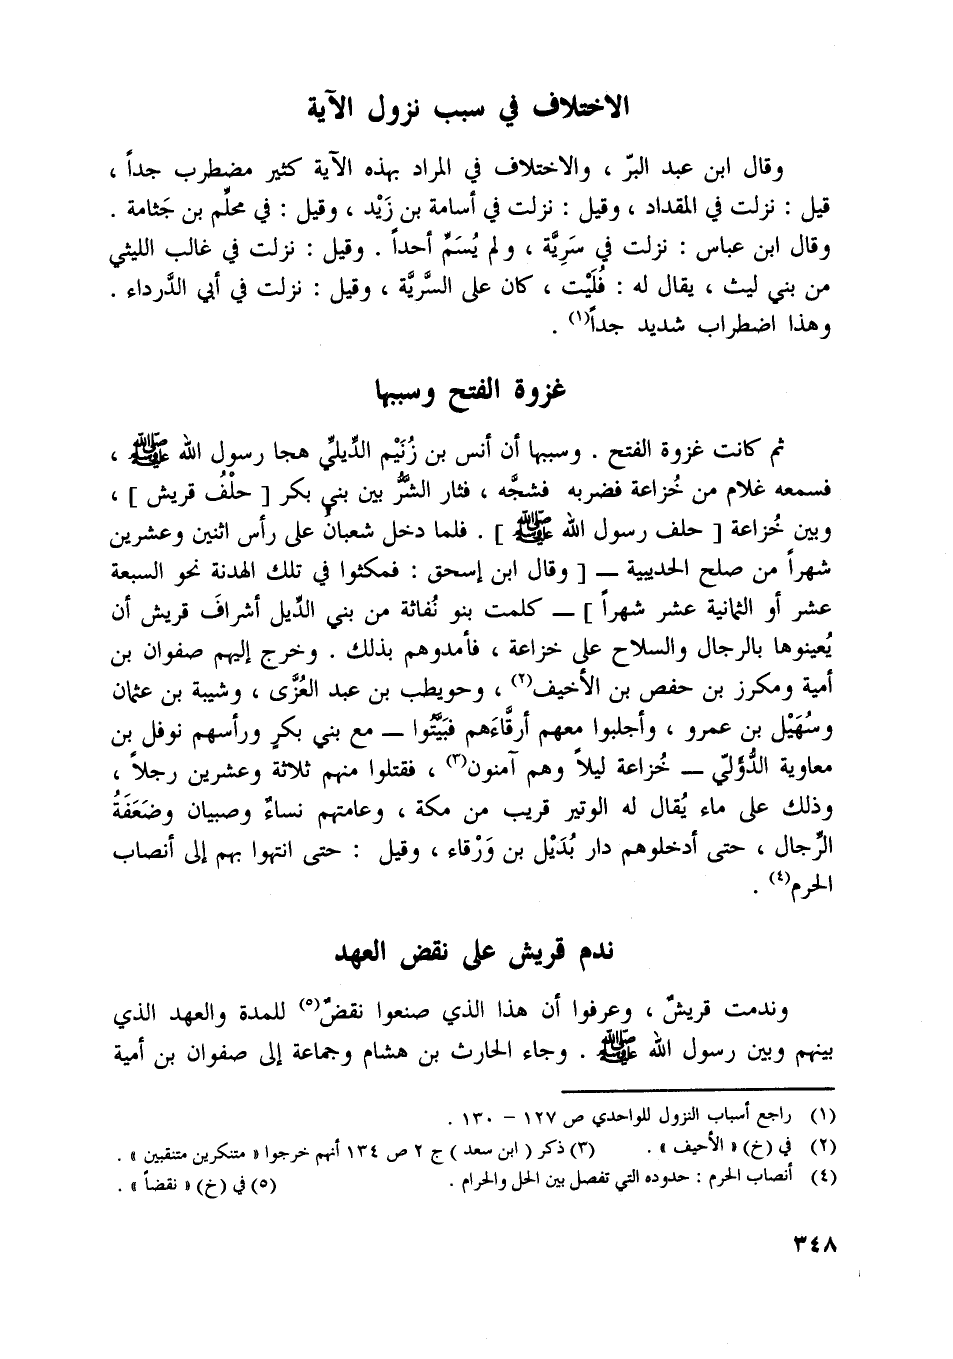 الاختلاف في سبب نزول الآية
وقال ابن عبد البرّ ، والاختلاف في المراد بهذه الآية كثير مضطرب جداً ،
قيل : نزلت في المقداد ، وقيل : نزلت في أسامة بن زَيْد ، وقيل : في محلِّم بن جَثامة .
وقال ابن عباس : نزلت في سَرِيَّة ، ولم يُسَمِّ أحداً . وقيل : نزلت في غالب الليثي
من بني ليث ، يقال له : فُلَيْت ، كان على السَّريَّة ، وقيل : نزلت في أبي الدَّرداء .
وهذا اضطراب شديد جداً(١) .
غزوة الفتح وسببها
ثم كانت غزوة الفتح . وسببها أن أنس بن زُنَيْم الدِّيليِّ هجا رسول الله ﷺ ،
فسمعه غلام من خُزاعة فضربه فشجَّه ، فثار الشرُّ بين بني بكر [ حلْفُ قريش ] ،
وبين خُزاعة [ حلف رسول الله ﷺ ] . فلما دخل شعبانُ على رأس اثنين وعشرين
شهراً من صلح الحديبية — [ وقال ابن إسحق : فمكثوا في تلك الهدنة نحو السبعة
عشر أو الثمانية عشر شهراً ] — كلمت بنو نُفاثة من بني الدِّيل أشرافَ قريش أن
يُعينوها بالرجال والسلاح على خزاعة ، فأمدوهم بذلك . وخرج إليهم صفوان بن
أمية ومكرز بن حفص بن الأخيف(٢) ، وحويطب بن عبد العُزَّى ، وشيبة بن عثمان
وسُهَيْل بن عمرو ، وأجلبوا معهم أرقَّاءَهم فبَيَّتُوا — مع بني بكرٍ ورأسهم نوفل بن
معاوية الدُّؤَليّ — خُزاعة ليلاً وهم آمنون(٣) ، فقتلوا منهم ثلاثة وعشرين رجلاً ،
وذلك على ماء يُقال له الوتير قريب من مكة ، وعامتهم نساءٌ وصبيان وضَعَفَةُ
الرِّجال ، حتى أدخلوهم دار بُدَيْل بن وَرْقاء ، وقيل : حتى انتهوا بهم إلى أنصاب
الحرم(٤) .
ندم قريش على نقض العهد
وندمت قريشٌ ، وعرفوا أن هذا الذي صنعوا نقضٌ(٥) للمدة والعهد الذي
بينهم وبين رسول الله ﷺ . وجاء الحارث بن هشام وجماعة إلى صفوان بن أمية
(١) راجع أسباب النزول للواحدي ص ١٢٧ – ١٣٠ .
(٢) في (خ) « الأحيف » . (٣) ذكر ( ابن سعد ) ج ٢ ص ١٣٤ أنهم خرجوا « متنكرين متنقبين » .
(٤) أنصاب الحرم : حدوده التي تفصل بين الحل والحرام . (٥) في (خ) « نقضاً » .
٣٤٨